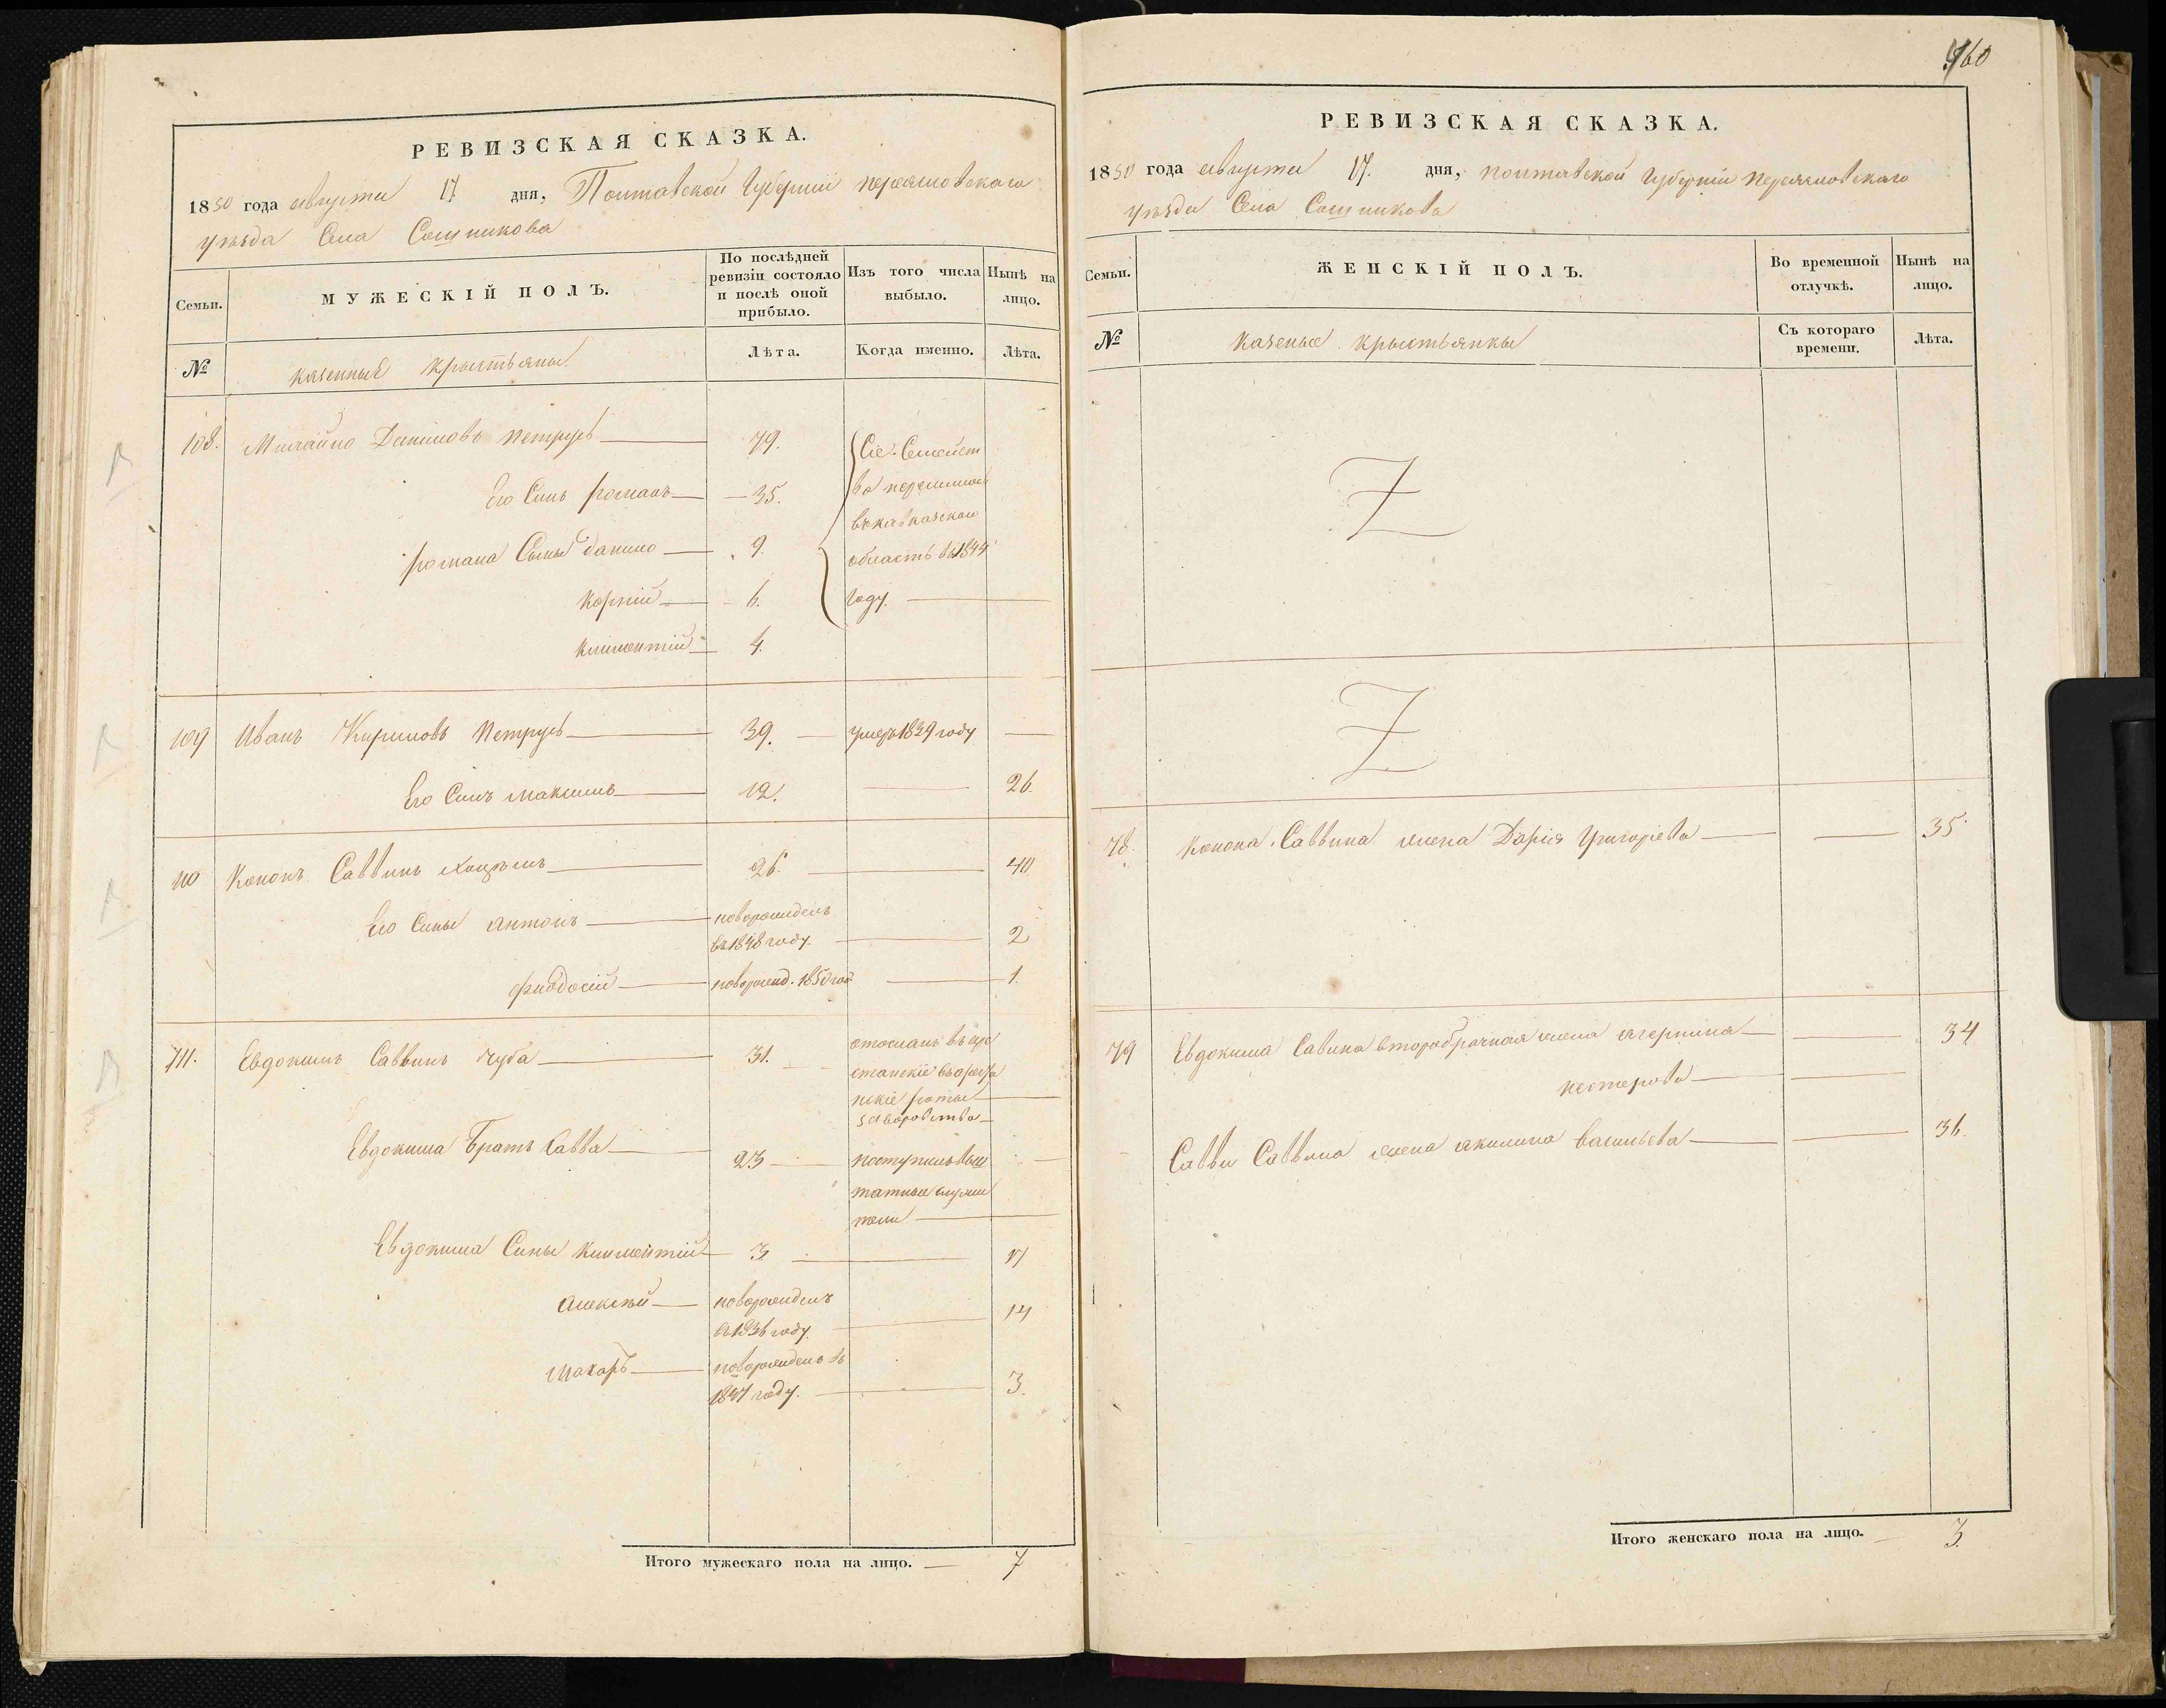 460
РЕВИЗСКАЯ СКАЗКА.
1850 года августа 17 дня, Полтавской Губерніи переяславскаго
уезда Села Сошникова
Семьи.
МУЖЕСКІЙ ПОЛЪ.
По послѣдней ревизіи состояло и послѣ оной прибыло.
Изъ того числа выбыло.
Нынѣ на лицо.
№
казенные крыстьяны
Лѣта.
Когда именно.
Лѣта.
108. Михайло Даниловъ Петрусь 79. Сіе Семейст
Его Синъ романъ 35. во переишло
вкавказскою
романа Сыны данило 9. область в 1844
Корній 6. году.
климентій 4.
109 Иванъ Кириловъ Петрусь 39. умеръ 1839 году
Его Синъ максимъ 12. 26.
110 Кононъ Саввинъ 26. 40
Его Сины антонъ новорожденъ
въ 1848 году. 2
новорожд. 1850 год 1.
111. Евдокимъ Саввинъ чуба 31. отосланъ въ аре
станскіе
роты
за воровства
Евдокима Братъ Савва 23 поступилъ выш
татные служи
тели
Евдокима Сины климентій 3 17
Алексѣй новорожденъ
в 1836 году. 14
Макаръ новорожденъ въ
1847 году. 3.
Итого мужескаго пола на лицо. 7
РЕВИЗСКАЯ СКАЗКА.
1850 года августа 17. дня, полтавской Губерніи переяславскаго
уезда Села Сошникова
Семьи.
ЖЕНСКІЙ ПОЛЪ.
Во временной отлучкѣ.
Нынѣ на лицо.
№
казеные крыстьянкы
Съ котораго времени.
Лѣта.
Z
Z
78. Конона Саввина жена Дарія Григоріева 35.
79 Евдокима Савина второбрачная жена 34
нестерова
Савви Саввина жена акилина васильева 36.
Итого женскаго пола на лицо. 3.